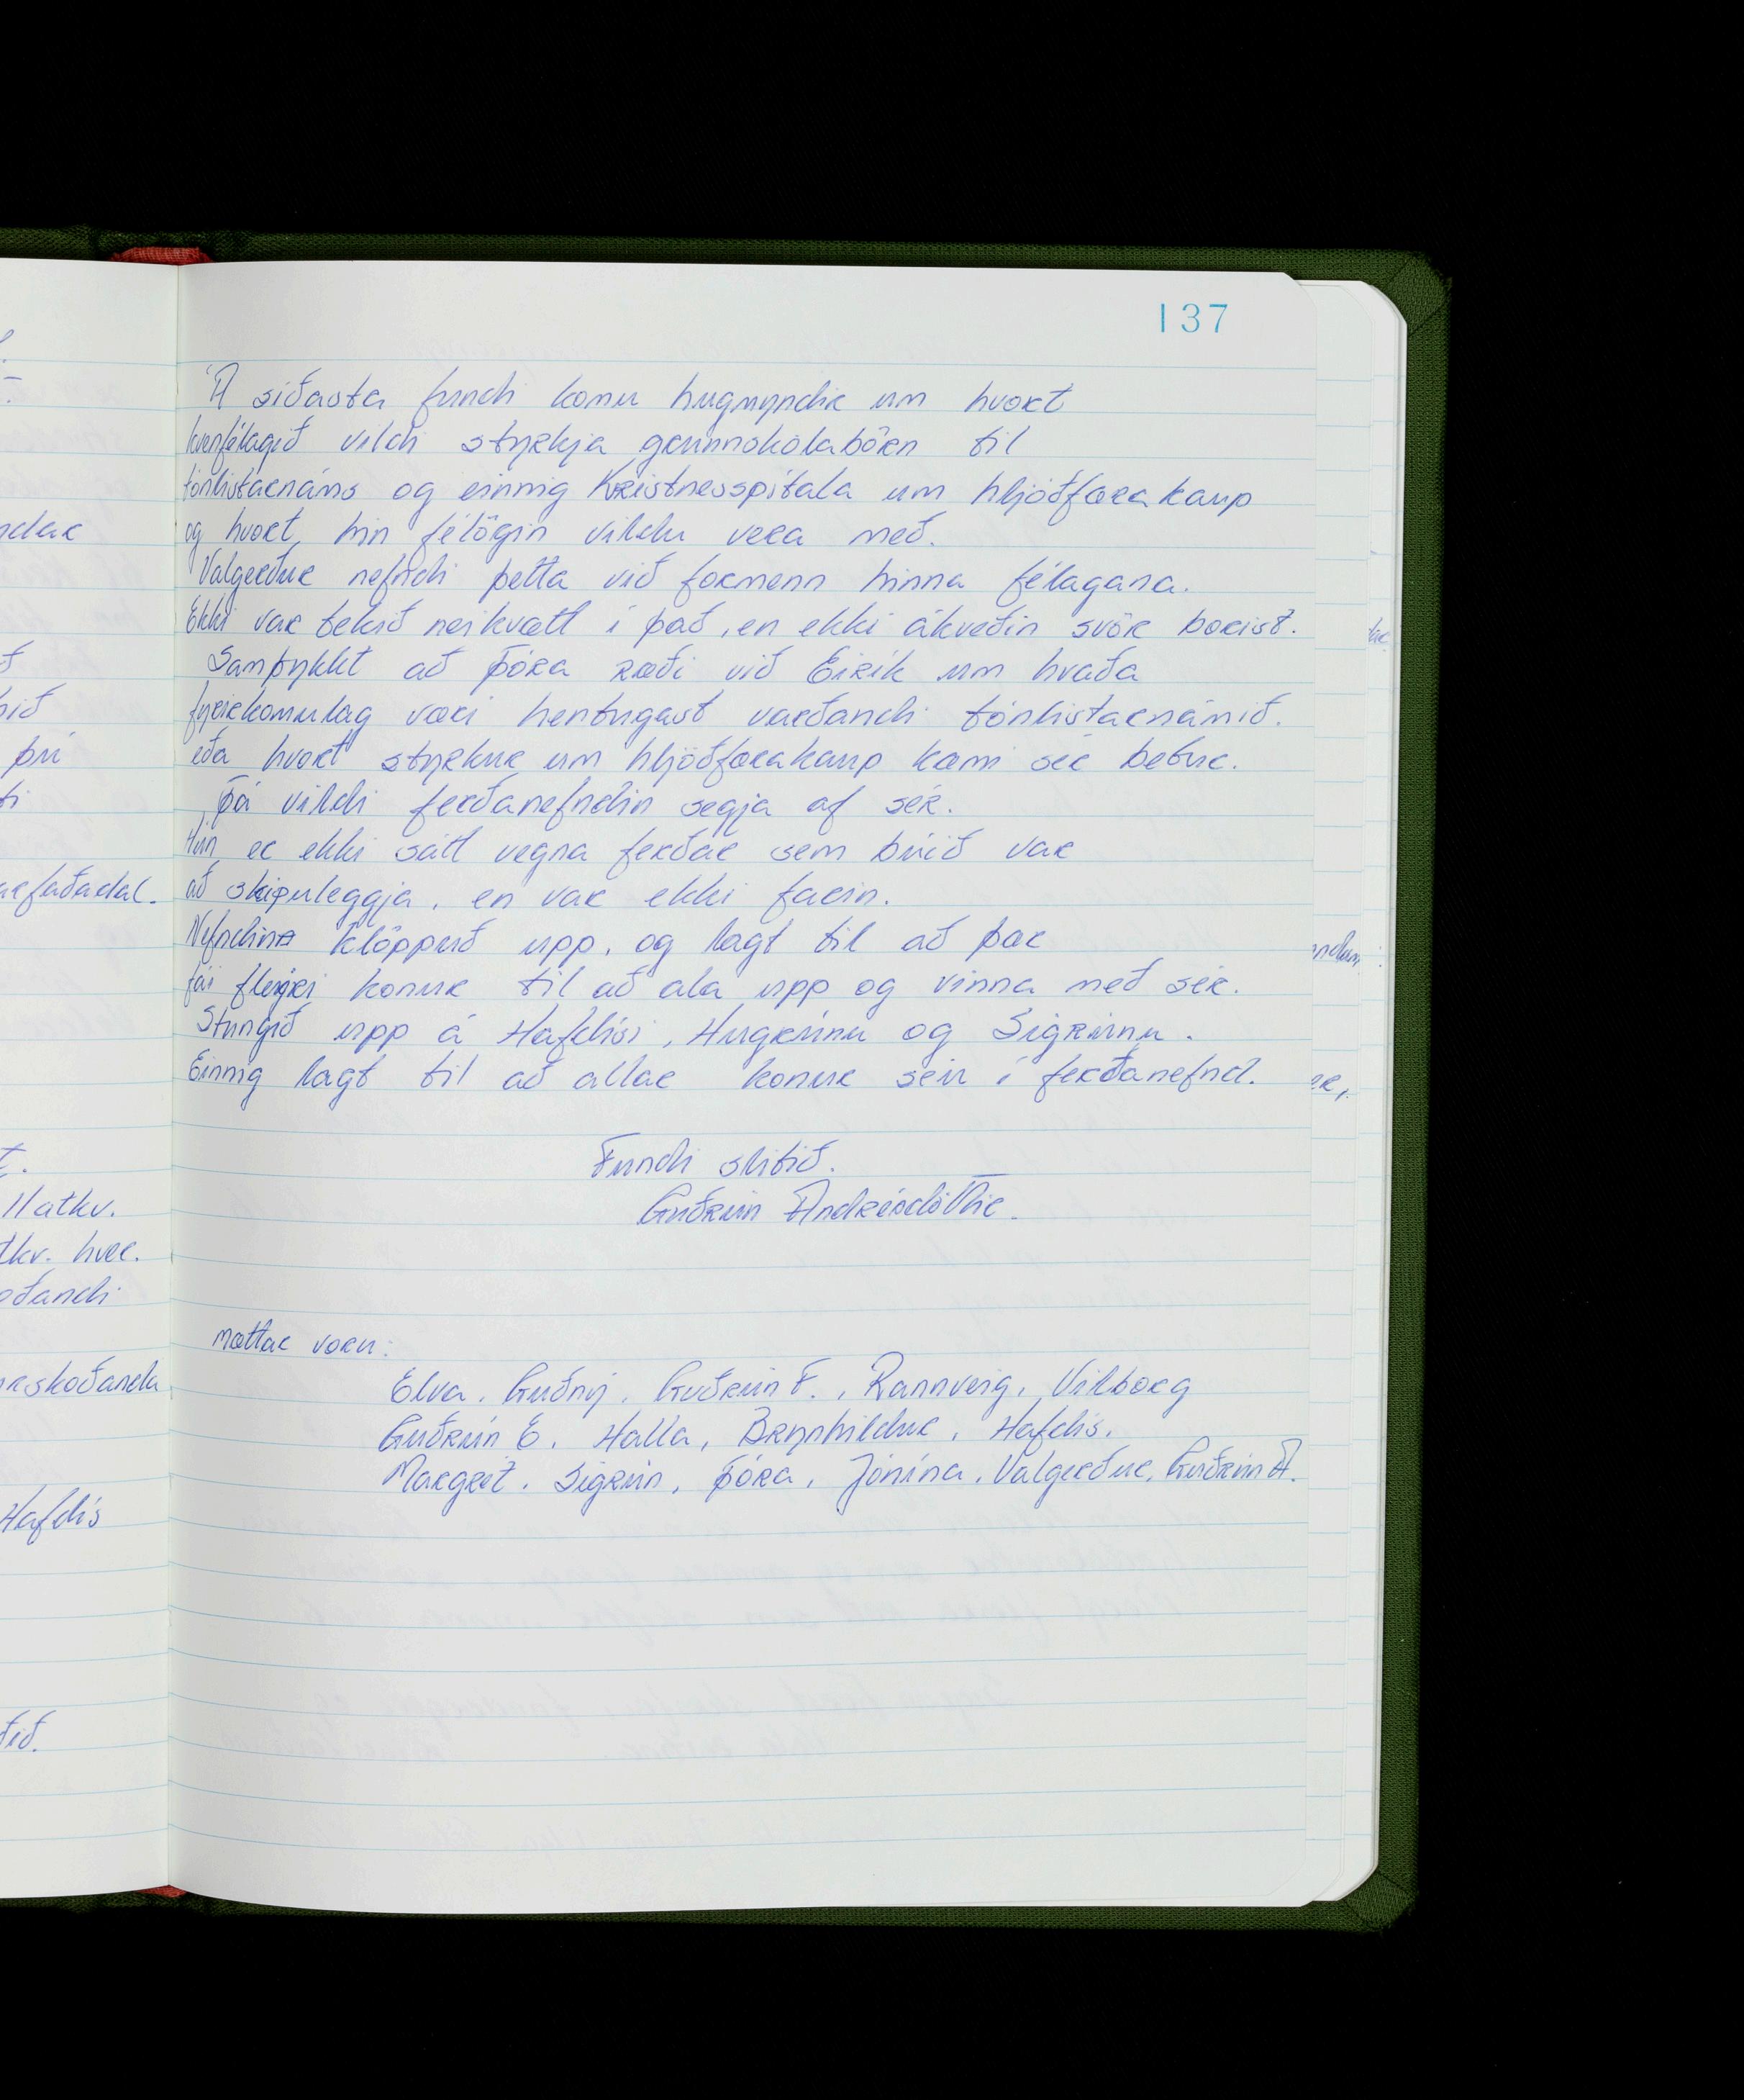 137
Á síðasta fundi komu hugmyndir um hvort
kvenfélagið vildi styrkja grunnskólabörn til
tónlistarnáms og einnig Kristnesspítala um hljóðfærakaup
og hvort hin félögin vildu vera með.
Valgerður nefndi þetta við formenn hinna félagana.
Ekki var tekið neikvætt í það, en ekki ákveðin svör borist.
Samþykkt að Þóra ræði við Eirík um hvaða
fyrirkomulag væri hentugast varðandi tónlistarnámið.
eða hvort styrkur um hljóðfærakaup kæmi sér betur.
Þá vildi ferðanefndin segja af sér.
Hún er ekki sátt vegna ferðar sem búið var
að skipuleggja, en var ekki farin.
Nefndin klöppuð upp, og lagt til að þær
fái fleiri konur til að ala upp og vinna með sér.
Stungið upp á Hafdísi, Hugrúnu og Sigrúnu.
Einnig lagt til að allar konur séu í ferðanefnd.
Fundi slitið.
Guðrún Andrésdóttir.
Mættar voru:
Elva, Guðný, Guðrún F., Rannveig, Vilborg
Guðrún E. Halla, Brynhildur, Hafdís.
Margrét. Sigrún, Þóra, Jónína, Valgerður, Guðrún A.
ndar
þú
arfaðadal.
11 atkv.
tkv. hver.
oðandi
rskoðanda
Hafdís